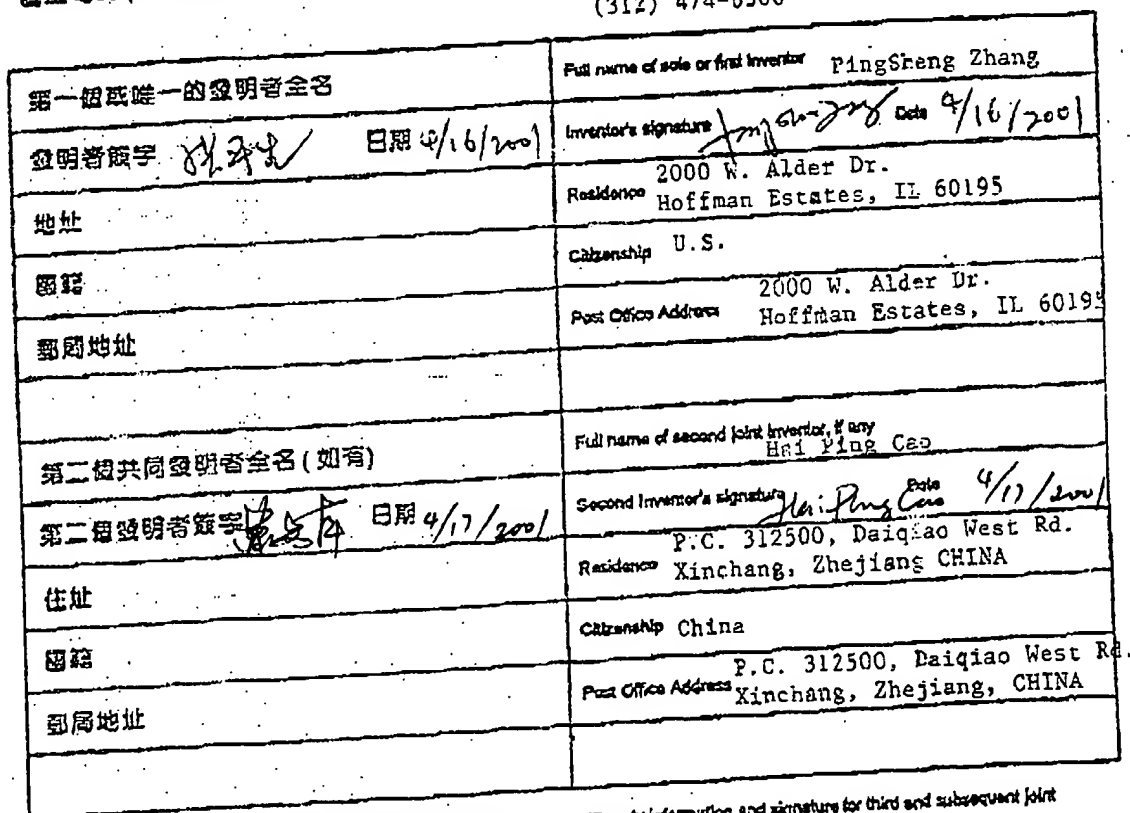 (312) 474-6300
第一個或唯一的發明者全名
Full name of sole or first inventor PingSheng Zhang
發明者簽字 日期 4/16/2001
Inventor's signature Date 4/16/2001
地址
Residence 2000 W. Alder Dr.
Hoffman Estates, IL 60195
國籍
Citizenship U.S.
郵局地址
Post Office Address 2000 W. Alder Dr.
Hoffman Estates, IL 60195
第二個共同發明者全名(如有)
Full name of second joint inventor, if any
Hai Ping Cao
第二個發明者簽字 日期 4/17/2001
Second Inventor's signature Hai Ping Cao Date 4/17/2001
住址
Residence P.C. 312500, Daiqiao West Rd.
Xinchang, Zhejiang CHINA
國籍
Citizenship China
郵局地址
Post Office Address P.C. 312500, Daiqiao West Rd.
Xinchang, Zhejiang, CHINA
information and signature for third and subsequent joint